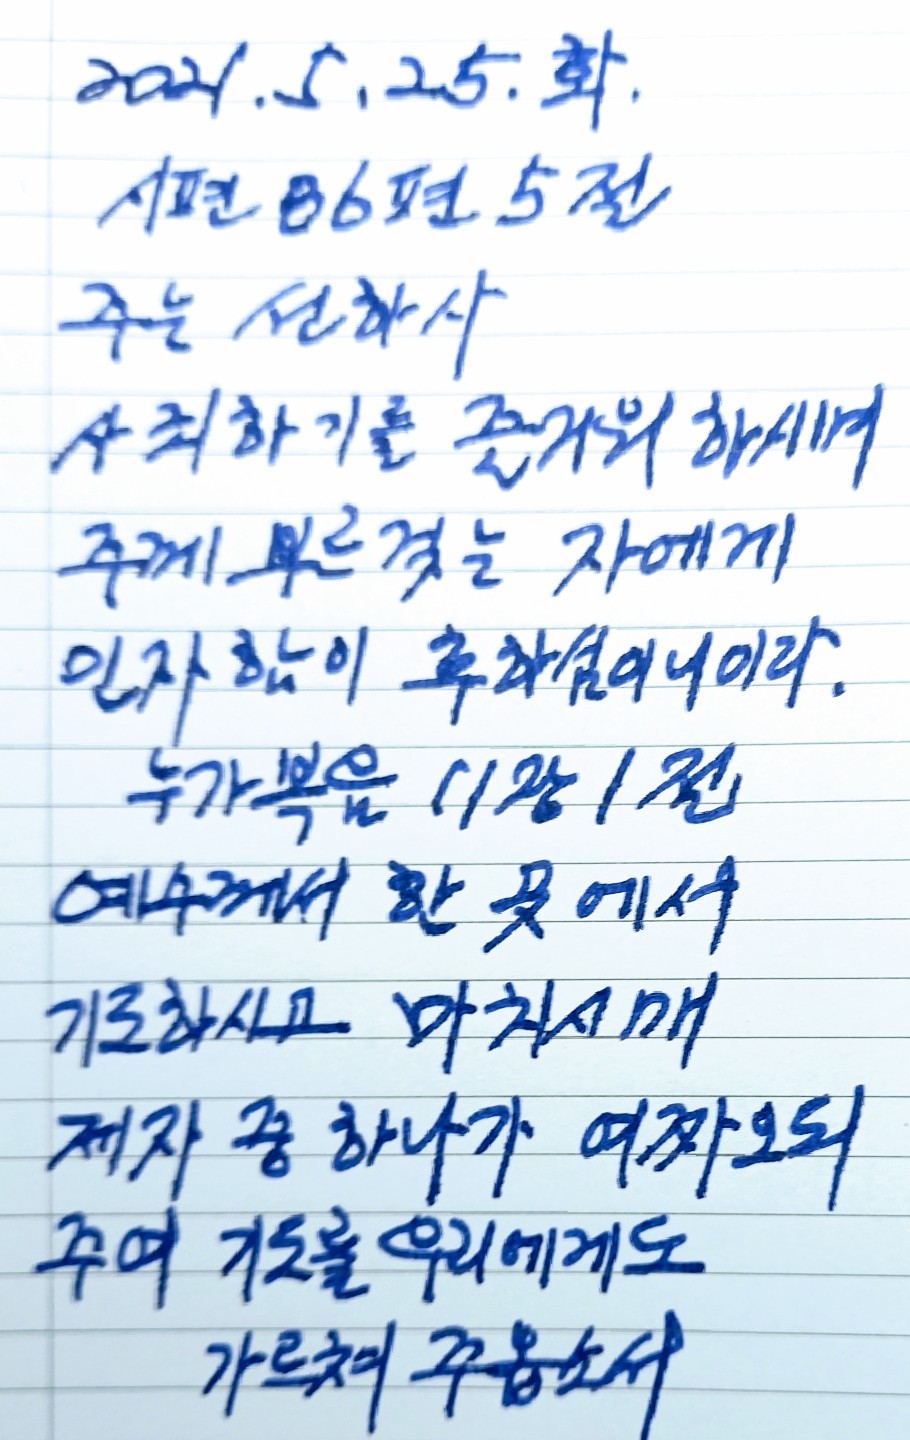 2021.5.25.화.
시편 86편 5절
주는 선하사
사죄하기를 즐거워 하시며
주께 부르짖는 자에게
인자함이 후하심이니이다.
누가복음 11장 1절
예수께서 한 곳에서
기도하시고 마치시매
제자 중 하나가 여짜오되
주여 기도를 우리에게도
가르쳐 주옵소서